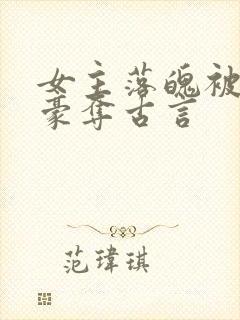 女主落魄被
豪夺古言
范瑋琪